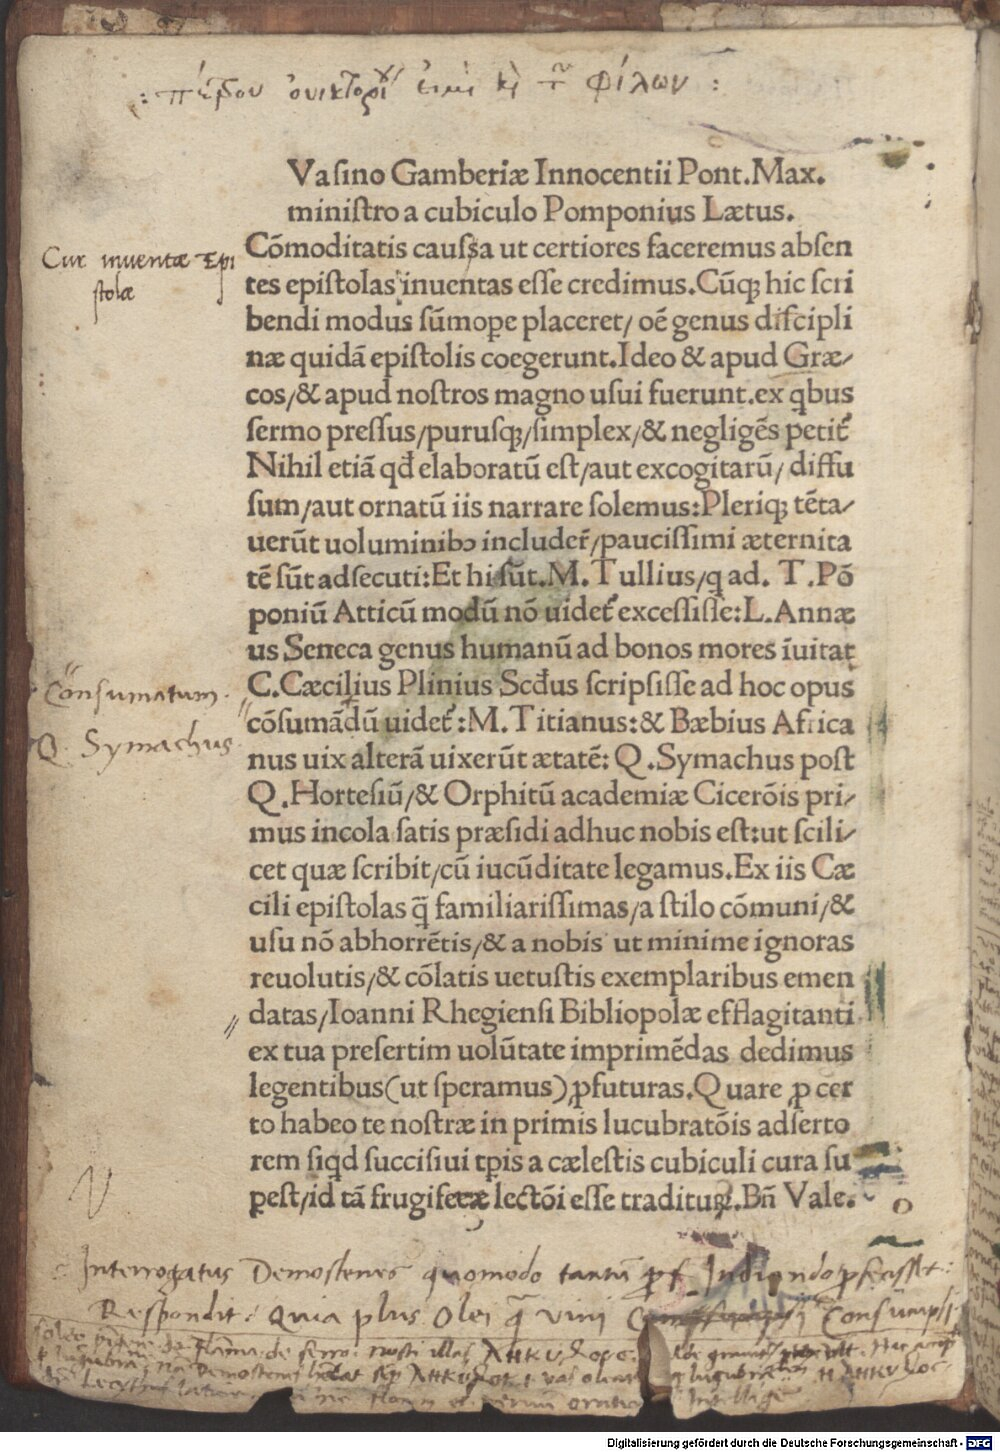 : πέτρου ουικτορί εἰμὶ κὶ τ φίλων :
Vasino Gamberiæ Innocentii Pont.Max.
ministro a cubiculo Pomponius Lætus.
Cur inventæ Epi
stolæ
Cōmoditatis caussa ut certiores faceremus absen
tes epistolas inuentas esse credimus.Cūqꝫ hic scri
bendi modus sūmoꝑe placeret/ oē genus discipli
næ quidā epistolis coegerunt.Ideo & apud Græ/
cos/& apud nostros magno usui fuerunt.ex qbus
sermo pressus/purusqꝫ/simplex/& negligēs petit᷑
Nihil etiā qđ elaboratū est/aut excogitarū/ diffu
sum/aut ornatū iis narrare solemus:Pleriqꝫ tēta/
uerūt uoluminibꝯ includer̄/paucissimi æternita
tē sūt adsecuti:Et hi sūt.M.Tullius/q ad. T.Pō
poniū Atticū modū nō uidet᷑ excessisse:L.Annæ
us Seneca genus humanū ad bonos mores īuitat
Consumatum.
C.Cæcilius Plinius Scđus scripsisse ad hoc opus
cōsumādū uidet᷑:M.Titianus:& Bæbius Africa
Q. Symachus
nus uix alterā uixerūt ætatē: Q.Symachus post
Q.Hortesiū/& Orphitū academiæ Cicerōis pri/
mus incola satis præsidi adhuc nobis est:ut scili/
cet quæ scribit/cū iucūditate legamus.Ex iis Cæ
cili epistolas q̄ familiarissimas/a stilo cōmuni/&
usu nō abhorrētis/& a nobis ut minime ignoras
reuolutis/& cōlatis uetustis exemplaribus emen
datas/Ioanni Rhegiensi Bibliopolæ efflagitanti
ex tua presertim uolūtate imprimēdas dedimus
legentibus(ut speramus)ꝓfuturas.Quare ꝓ cer
to habeo te nostræ in primis lucubratōis adserto
rem siqd succisiui tꝑis a cælestis cubiculi cura su
ꝑest/id tā frugiferæ lectōi esse traditurꝫ.Bn̄ Vale.
Interrogatus Demostenes quomodo tantū
Respondit: Quia plus Olei q̄ vini Consūmpsi